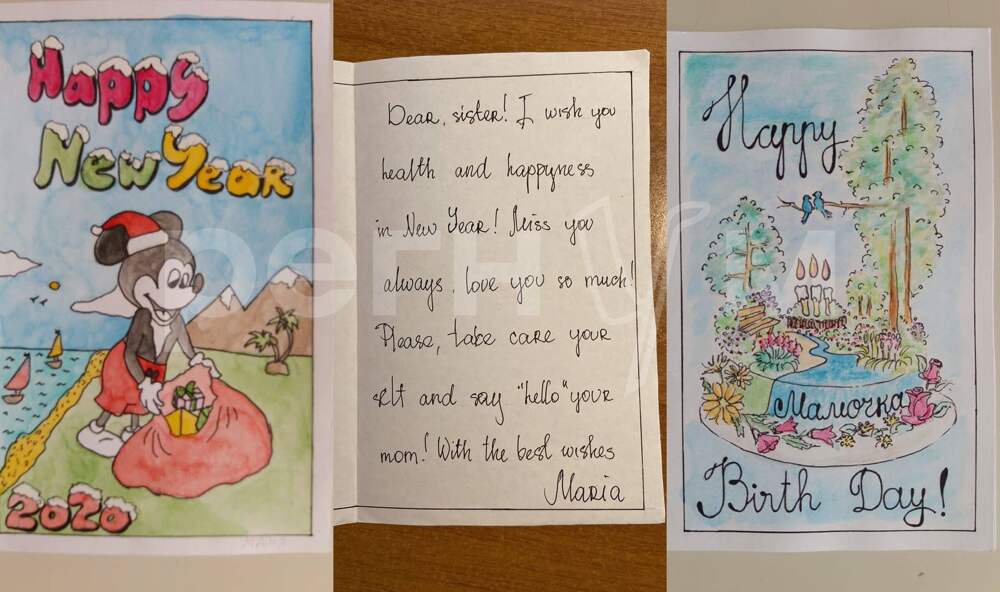 Happy
New Year
2020
Dear, sister! I wish you
health and happyness
in New Year! Miss you
always, love you so much!
Please, take care your
selt and say "hello" your
mom! With the best wishes
Maria
Happy
Мамочка
Birth Day!